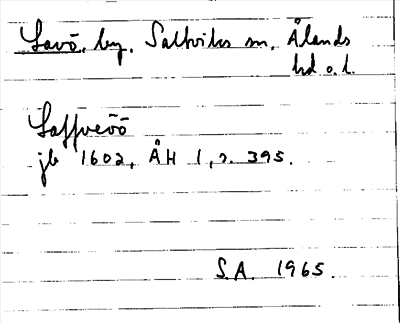 Lavö, by, Saltviks sn, Ålands
hd o. l.
Laffweöö
jb 1602, ÅH 1, s. 395.
S.A. 1965.